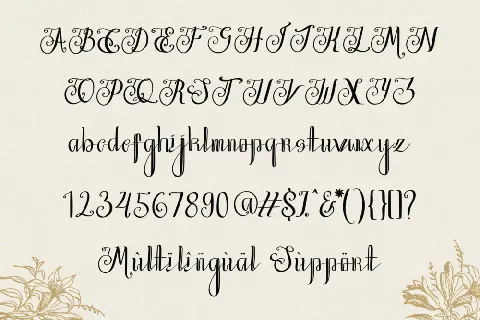 ABCDEFGHIJKLMN
OPQRSTUVWXYZ
abcdefghijklmnopqrstuvwxyz
1234567890@#$%^&*(){}[]?
Mùltilïñgùäl Sùppört